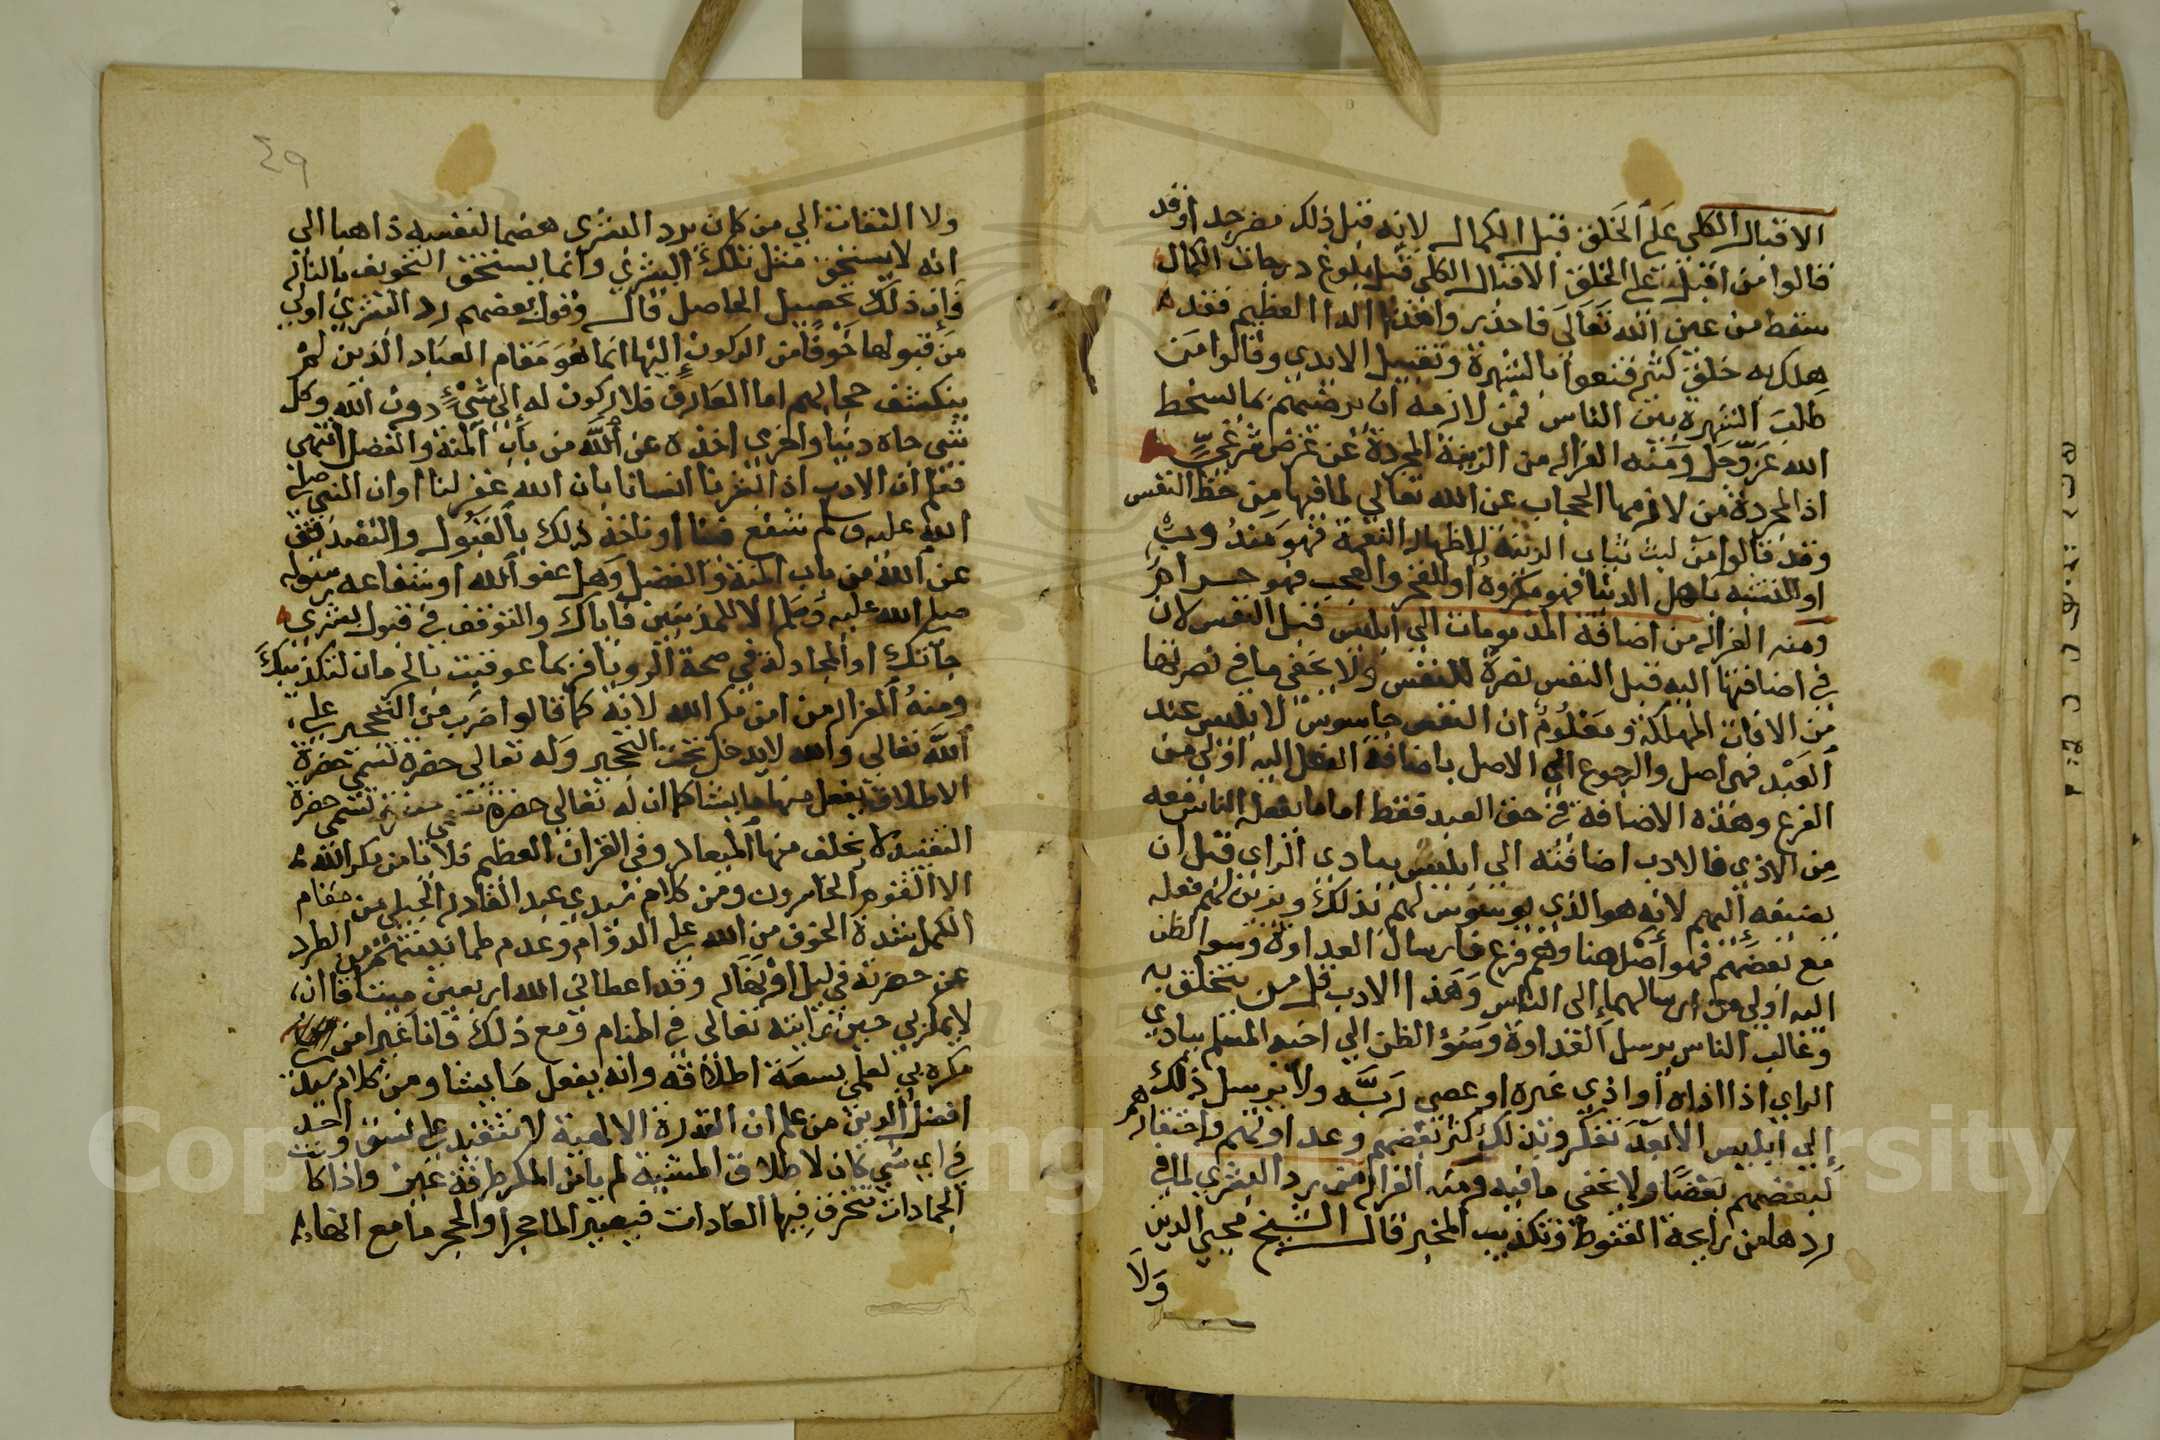 الاقبال الكلي على الخلق قبل الكمال لانه قبل ذلك مضر جدا وقد
قالوا من اقبل على الخلق الاقبال الكلي قبل بلوغ درجات الكمال
سقط من عين الله تعالى فاحذر وا هذا الداا العظيم فقد
هلك به خلق كثير قنعوا بالشهرة وتقبيل الايدي وقالوا من
طلب الشهرة بين الناس فمن لازمه ان يرضيهم بما يسخط
الله عز وجل ومنه الفرار من الزينة المجردة عن غرض شرعي
اذ المجردة من لازمها الحجاب عن الله تعالي لما فيها من حظ النفس
وقد قالوا من لبس ثياب الزينة لاظهار النعمة فهو مندوب
او للتشبه باهل الدنيا فهو مكروه او للفخر والعجب فهو حرام
ومنه الفرار من اضافة المذمومات الي ابليس قبل النفس لان
في اضافتها اليه قبل النفس نصرة للنفس ولا يخفي ما في نصرتها
من الافات المهلكة ومعلوم ان النفس جاسوس لابليس عند
العبد فهي اصل والرجوع الى الاصل باضافة الفعل اليه اولى من
الفرع وهذه الاضافة في حق العبد فقط اما ما يفعله الناس معه
من الاذي فالادب اضافته الي ابليس ببادي الراي قبل ان
يضيفه اليهم لانه هو الذي يوسوس لهم بذلك ويزين لهم فعله
مع بعضهم فهو اصل هنا وهم فرع فارسال العداوة وسوا الظن
اليه اولي من ارسالهما إلى الناس وهذا الادب قل من يتخلق به
وغالب الناس يرسل العداوة وسوؤ الظن الي اخيه المسلم ببادي
الراي اذا اذاه او اذي غيره او عصي ربه ولا يرسل ذلك
إلي ابليس الا بعد تفكر وبذلك كثر بغضهم وعداوتهم واحتقارهم
لبعضهم بعضا ولا يخفي ما فيه ومنه الفرار من رد البشري لما في
ردها من رايحة القنوط وتكذيب المخبر قال الشيخ محيي الدين
ولا
٤٩
ولا التفات الي من كان يرد البشري هضما لنفسه ذاهبا الي
انه لا يستحق مثل تلك البشري وانما يستحق التخويف بالنار
وان ذلك تحصيل الحاصل قال وقول بعضهم رد البشري اولي
من قبولها خوفا من الركون إليها انما هو مقام العباد الذين لم
ينكشف حجابهم اما العارف فلا ركون له الي شيء دون الله وكل
شي جاه دنيا واخري اخذه عن الله من باب المنة والفضل انتهى
فعلم ان الادب اذا بشرنا انسانا بان الله غفر لنا او ان النبي صلى
الله عليه وسلم شفع فينا او ناخذ ذلك بالقبول
عن الله من باب المنة والفضل وهل عفو الله او شفاعه رسوله
صلى الله عليه وسلم الا للمذنبين فاياك والتوقف في قبول بشري
جاتك او المجادلة في صحة الرويا فربما عوقبت بالحرمان لتكذيبك
ومنه الفرار من امن مكر الله لانه كما قالوا ضرب من التحجير على
الله تعالي والله لا يدخل تحت التحجير وله تعالى حضرة تسمى حضرة
الاطلاق يفعل منها ما يشا كما ان له تعالي حضرة تسمى حضرة
التقييد لا يخلف منها الميعاد وفى القران العظيم فلا يامن مكر الله
الا القوم الخاسرون ومن كلام سيدي عبد القادر الجيلي من مقام
الكمل شدة الخوف من الله على الدوام وعدم طمانينتهم من الطرد
عن حضرته في ليل او نهار وقد اعطاني الله اربعين ميثاقا ان
لا يمكر بي حين رايته تعالى في المنام ومع ذلك فانا غير امن
مكره بي لعلمي بسعة اطلاقه وانه يفعل ما يشا ومن كلام سيدي
افضل الدين من علم ان القدرة الالهية لا تتقيد على نسق واحد
في اي شي كان لاطلاق المشيه لم يامن المكر طرفة عين واذا كانت
الجمادات تنخرق فيها العادات فيصير الما حجرا والحجر ما مع انها